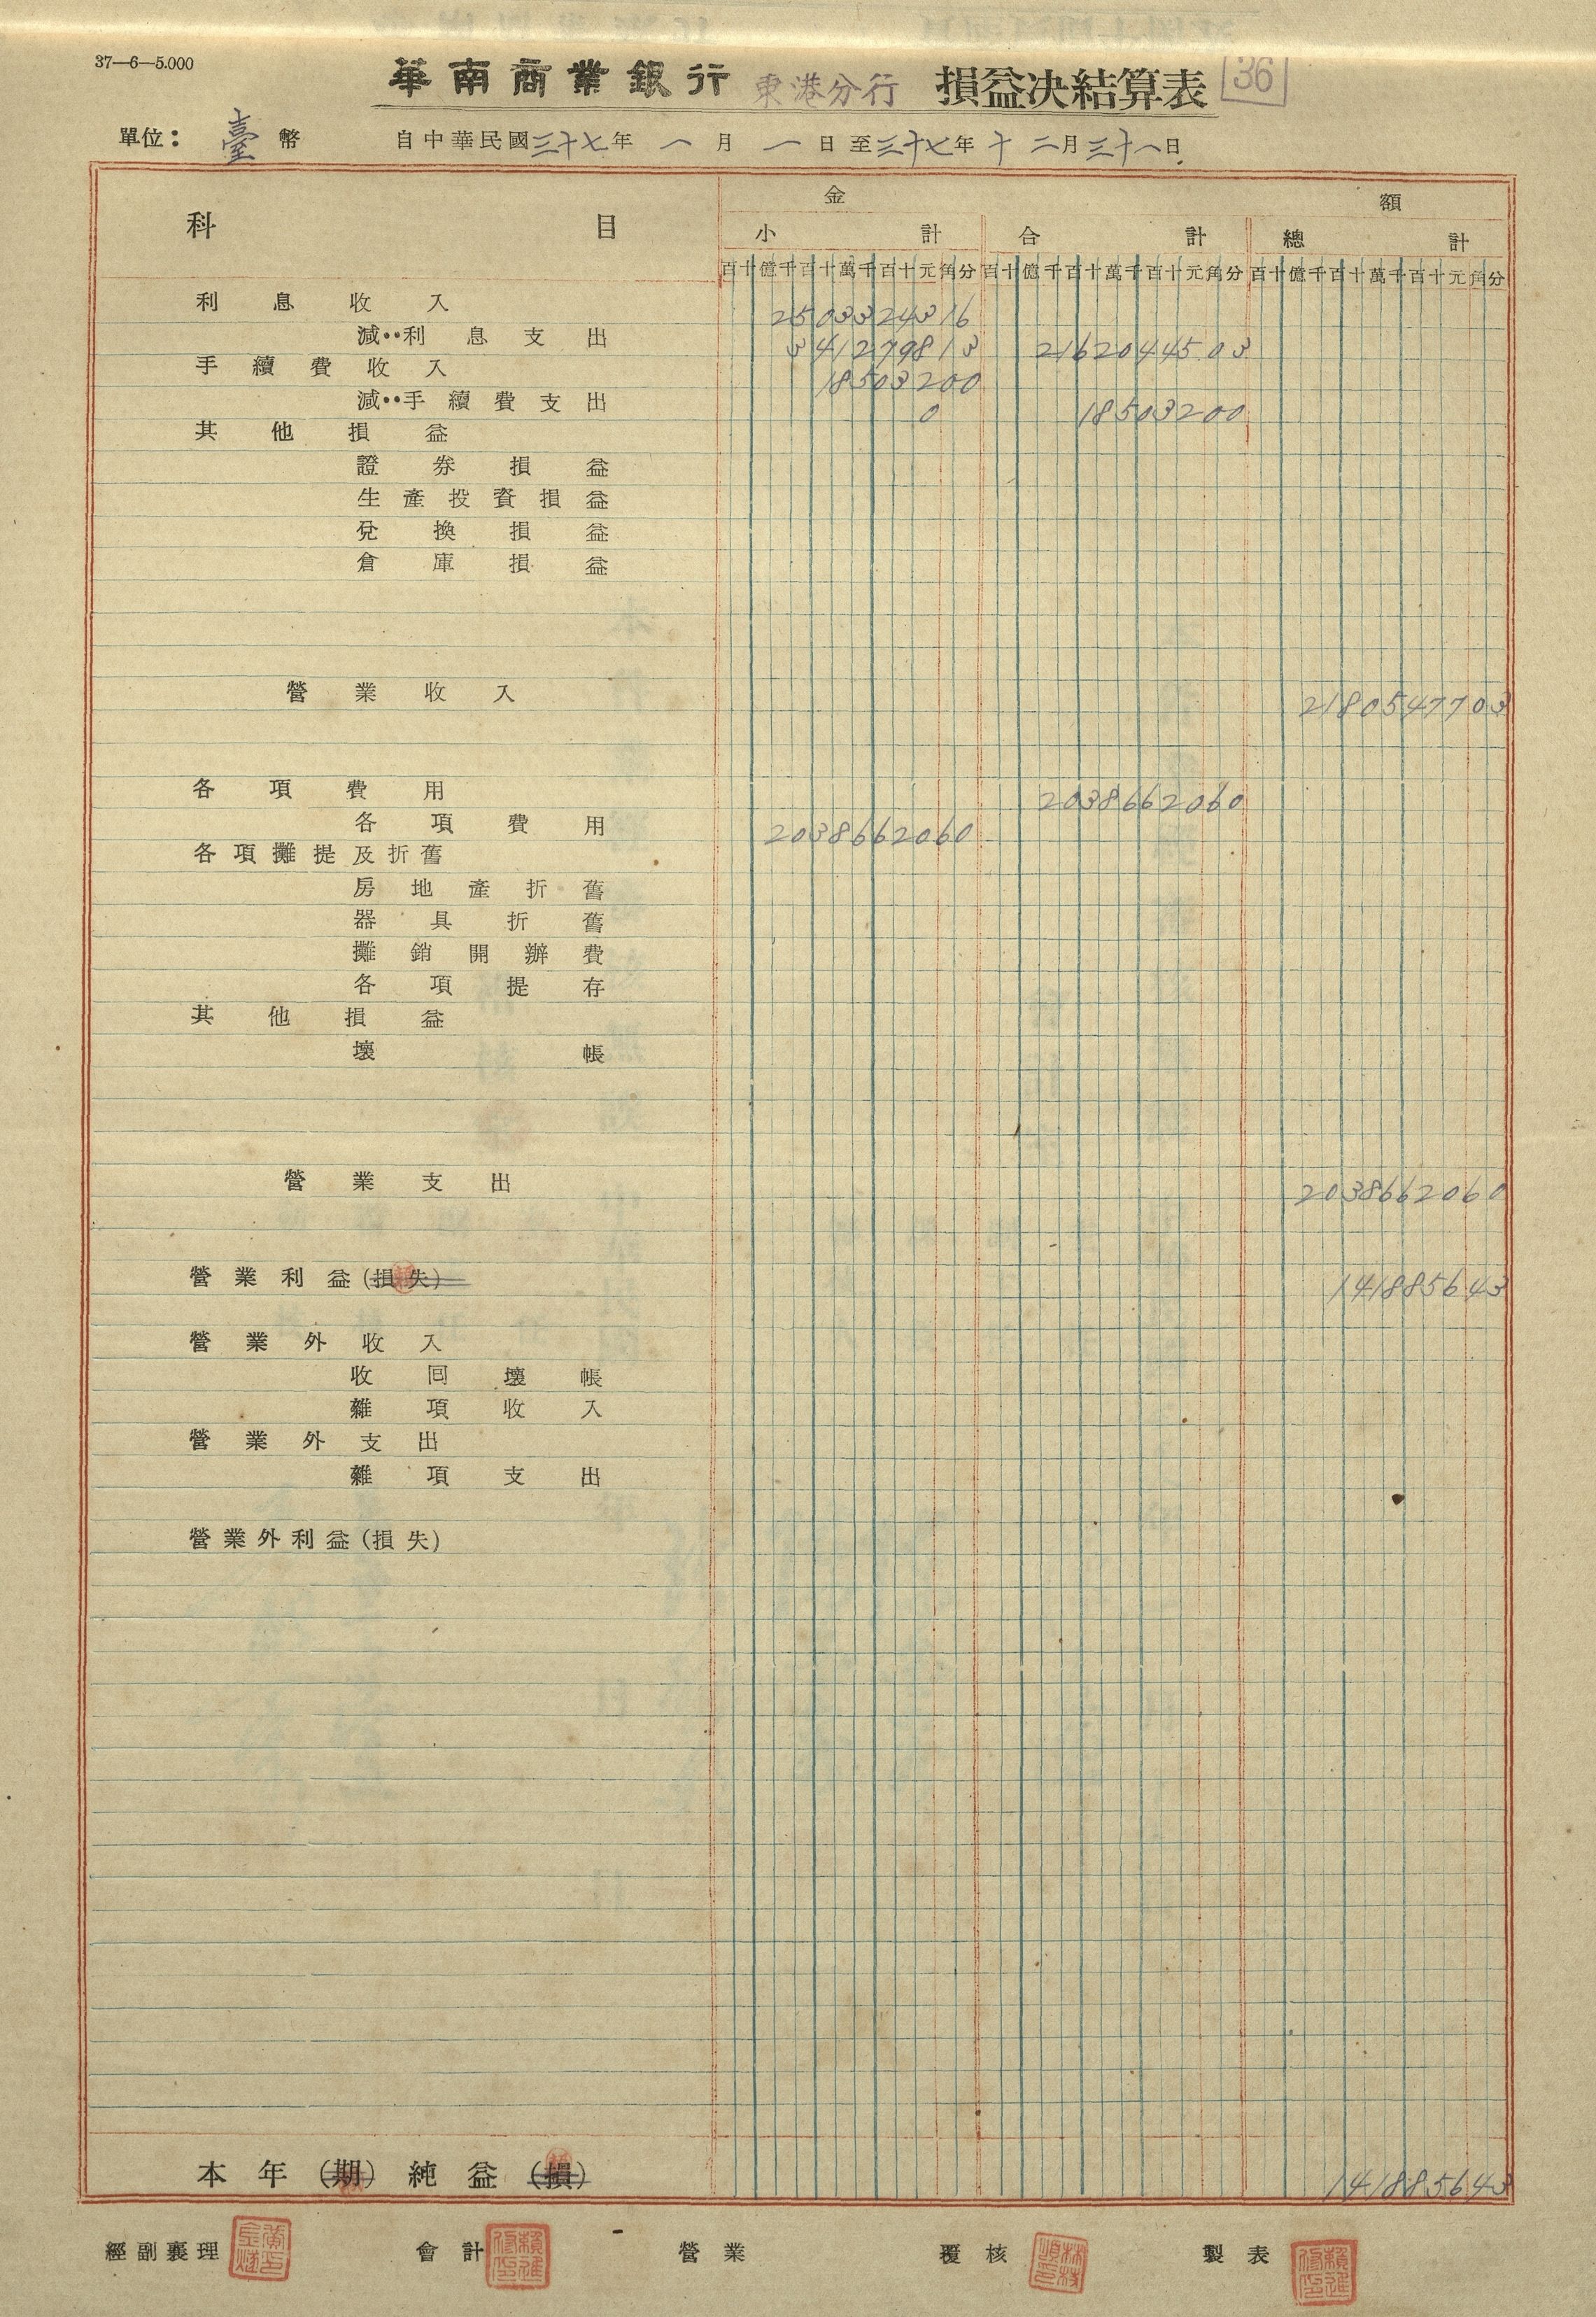 37—6—5.000
華南商業銀行 東港分行 損益決結算表 36
單位：臺幣 自中華民國三十七年一月一日至三十七年十二月三十一日
科目 金額
小計 合計 總計
百十億千百十萬千百十元角分 百十億千百十萬千百十元角分 百十億千百十萬千百十元角分
利息收入 2503324316
減：利息支出 341279813 2162044503
手續費收入 18503200
減：手續費支出 0 18503200
其他損益
證券損益
生產投資損益
兌換損益
倉庫損益
營業收入 2180547703
各項費用 2038662060
各項費用 2038662060
各項攤提及折舊
房地產折舊
器具折舊
攤銷開辦費
各項提存
其他損益
壞帳
營業支出 2038662060
營業利益(損失) 141885643
營業外收入
收回壞帳
雜項收入
營業外支出
雜項支出
營業外利益(損失)
本年(期)純益(損) 141885643
經副襄理 會計 營業 覆核 製表